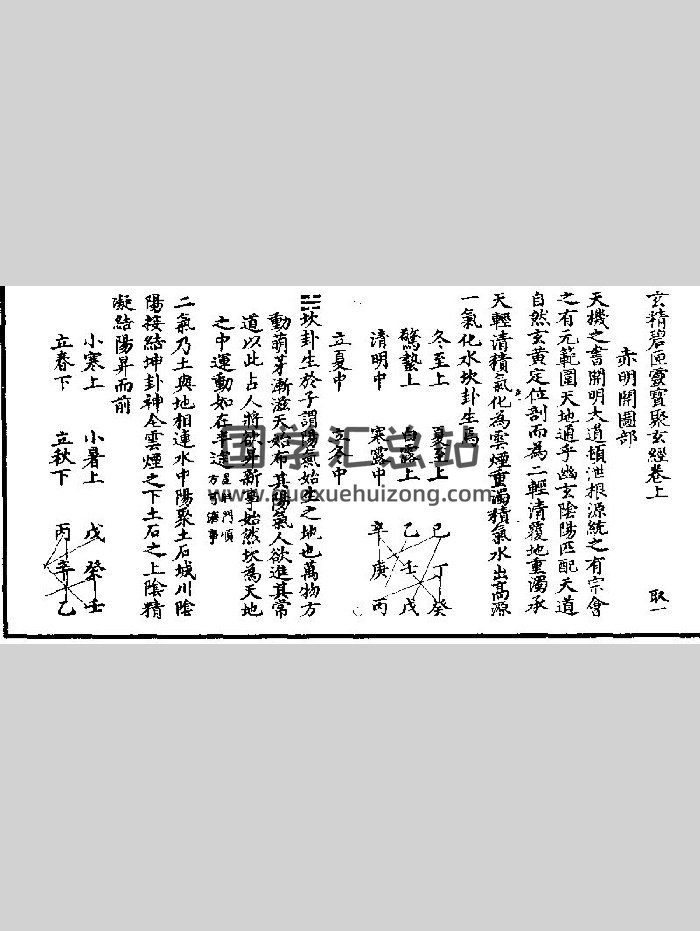 玄精碧匣靈寶聚玄經卷上 取一
赤明開圖部
天機之書開明大道頓泄根源統之有宗會
之有元範圍天地通乎幽玄陰陽匹配天道
自然玄黃定位剖而為二輕清覆地重濁承
天輕清積氣化為雲煙重濁積氣水出高源
一氣化水坎卦生焉
冬至上 夏至上 己丁癸
驚蟄上 白露上 乙壬戊
清明中 寒露中 辛庚丙
立夏中 立冬中
䷜坎卦生於子謂陽氣始生之地也萬物方
動萌芽漸滋天始布其陽氣人欲進其常
道以此占人將欲昇新事始然坎為天地
之中運動如在半途
二氣乃土與地相連水中陽聚土石城川陰
陽接結坤卦神全雲煙之下土石之上陰積
凝結陽昇而前
小寒上 小暑上 戊癸壬
立春下 立秋下 丙辛乙
国学汇总站
www.guoxuehuizong.com